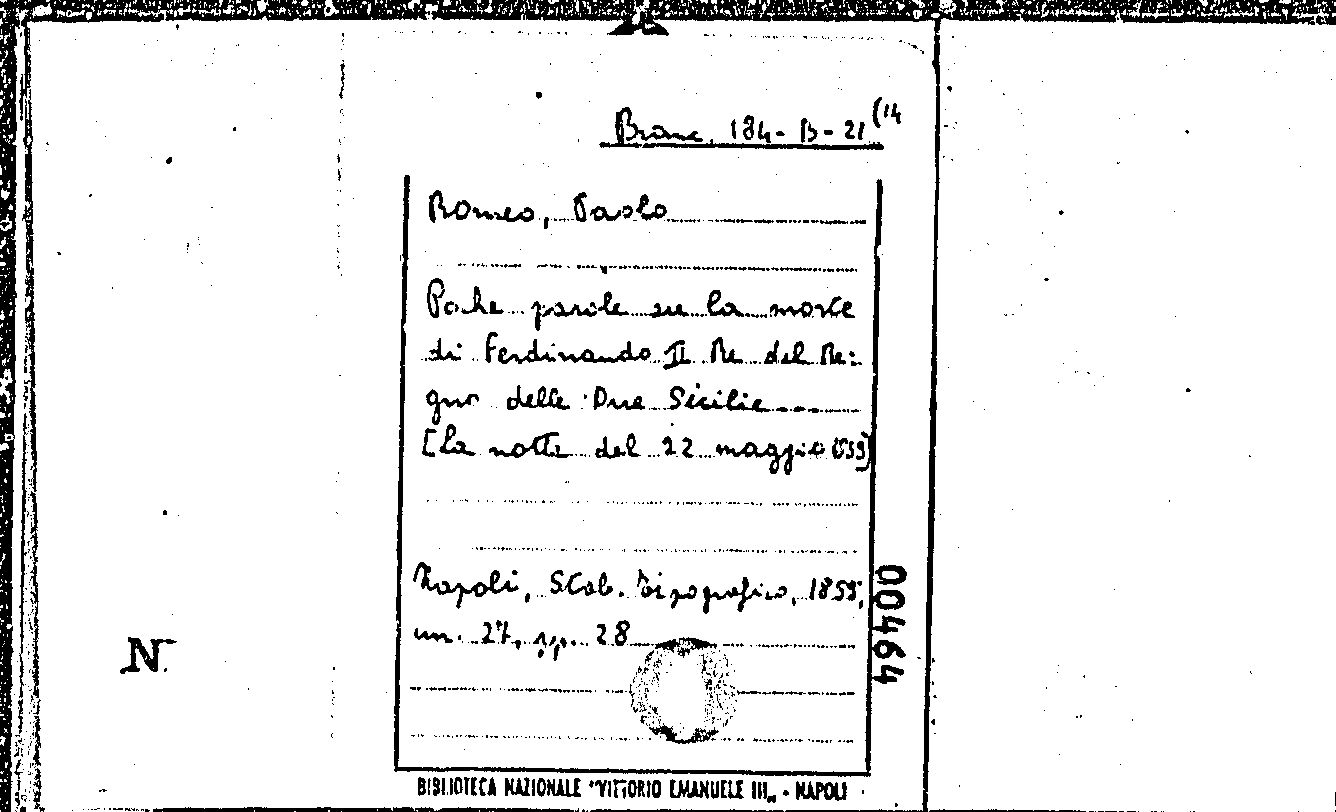 Branc. 184-B-21 (14
Romeo, Paolo
Poche parole su la morte
di Ferdinando II Re del Re=
gno delle Due Sicilie....
[la notte del 22 maggio 1859]
Napoli, Stab. Tipografico, 1859,
cm. 27, pp. 28
00464
N
BIBLIOTECA NAZIONALE "VITTORIO EMANUELE III„ - NAPOLI